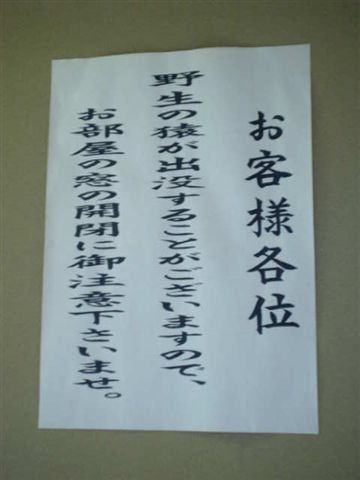 お客様各位
野生の猿が出没することがございますので、
お部屋の窓の開閉に御注意下さいませ。